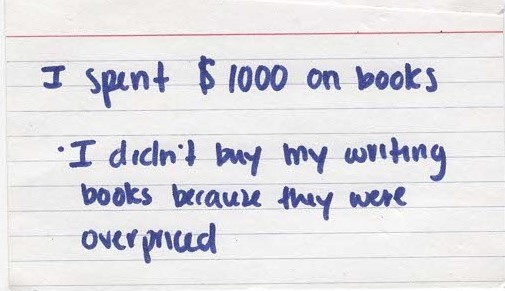 I spent $1000 on books
·I didn't buy my writing
books because they were
overpriced